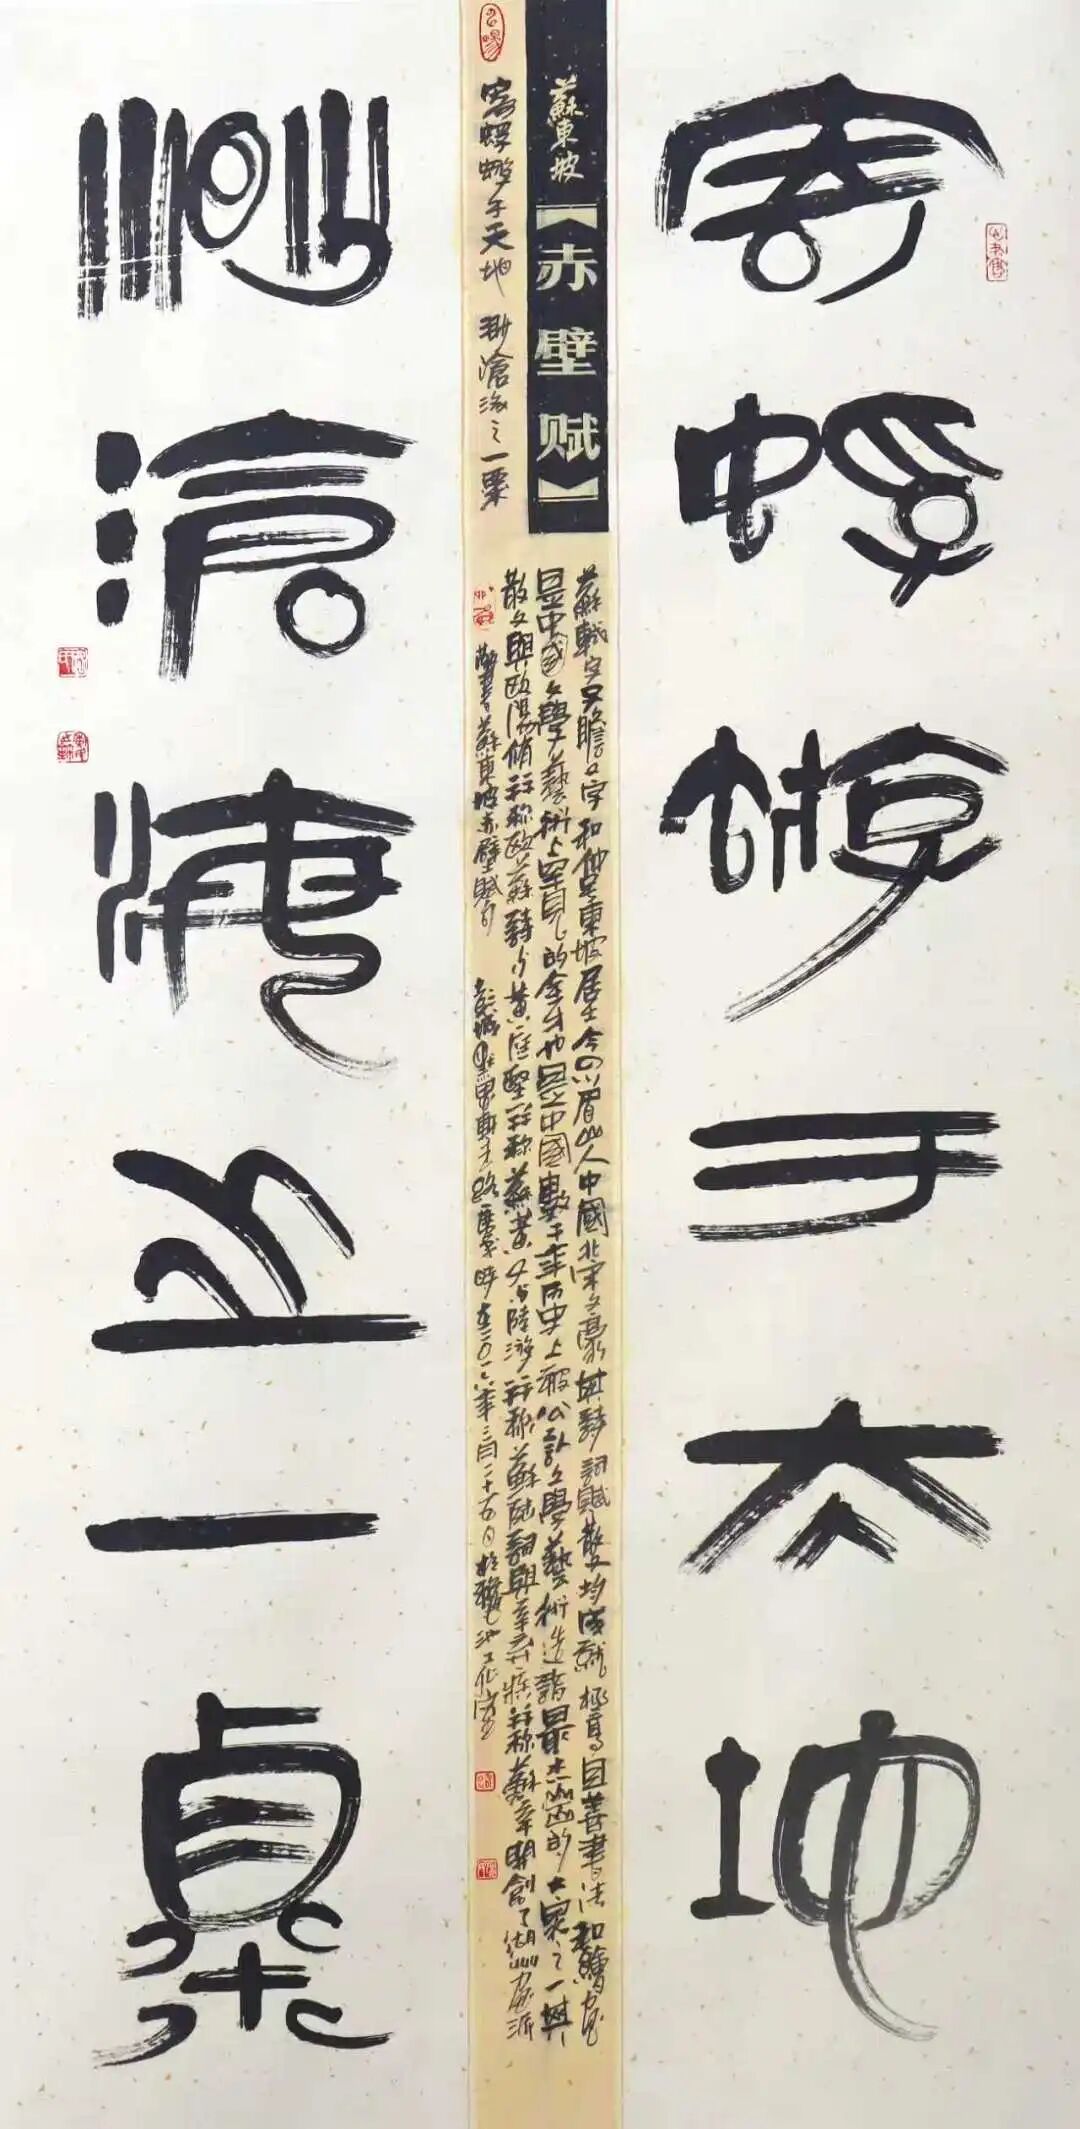 寄蜉蝣于天地
渺滄海之一粟
蘇東坡
【赤壁赋】
寄蜉蝣于天地 渺滄海之一粟
蘇軾字子瞻又字和仲号東坡居士今四川眉山人中國北宋文豪其詩詞賦散文均成就極高且善書法和繪画
是中國文學藝術上罕見的全才也是中國數千年历史上被公認文學藝術造詣最杰出的大家之一其
散文與歐陽脩并称歐蘇詩與黃庭堅并称蘇黃又與陸游并称蘇陸詞與辛弃疾并称蘇辛開創了湖州画派
蘇東坡赤壁賦句